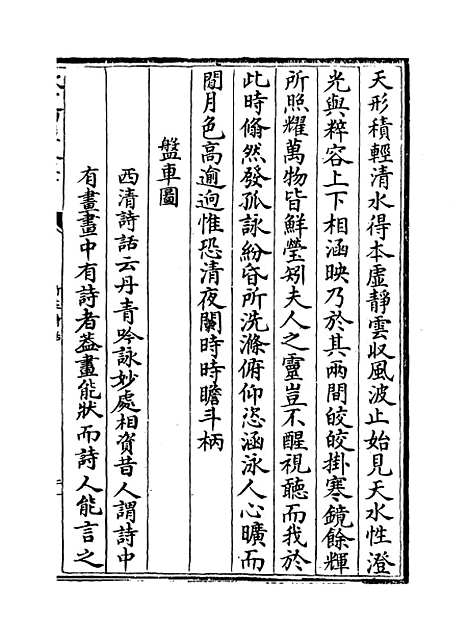 天形積輕清水得本虛靜雲収風波止始見天水性澄
光與粹容上下相涵映乃於其兩間皎皎掛寒鏡餘輝
所照耀萬物皆鮮瑩矧夫人之靈豈不醒視聽而我於
此時翛然發孤詠紛昏所洗滌俯仰恣涵泳人心曠而
閒月色高逾迥惟恐清夜闌時時瞻斗柄
盤車圖
西清詩話云丹青吟詠妙處相資昔人謂詩中
有畫畫中有詩者葢畫能狀而詩人能言之